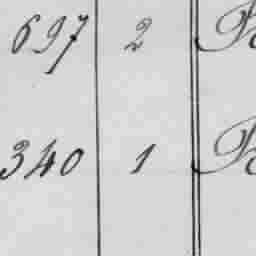 697 2
340 1